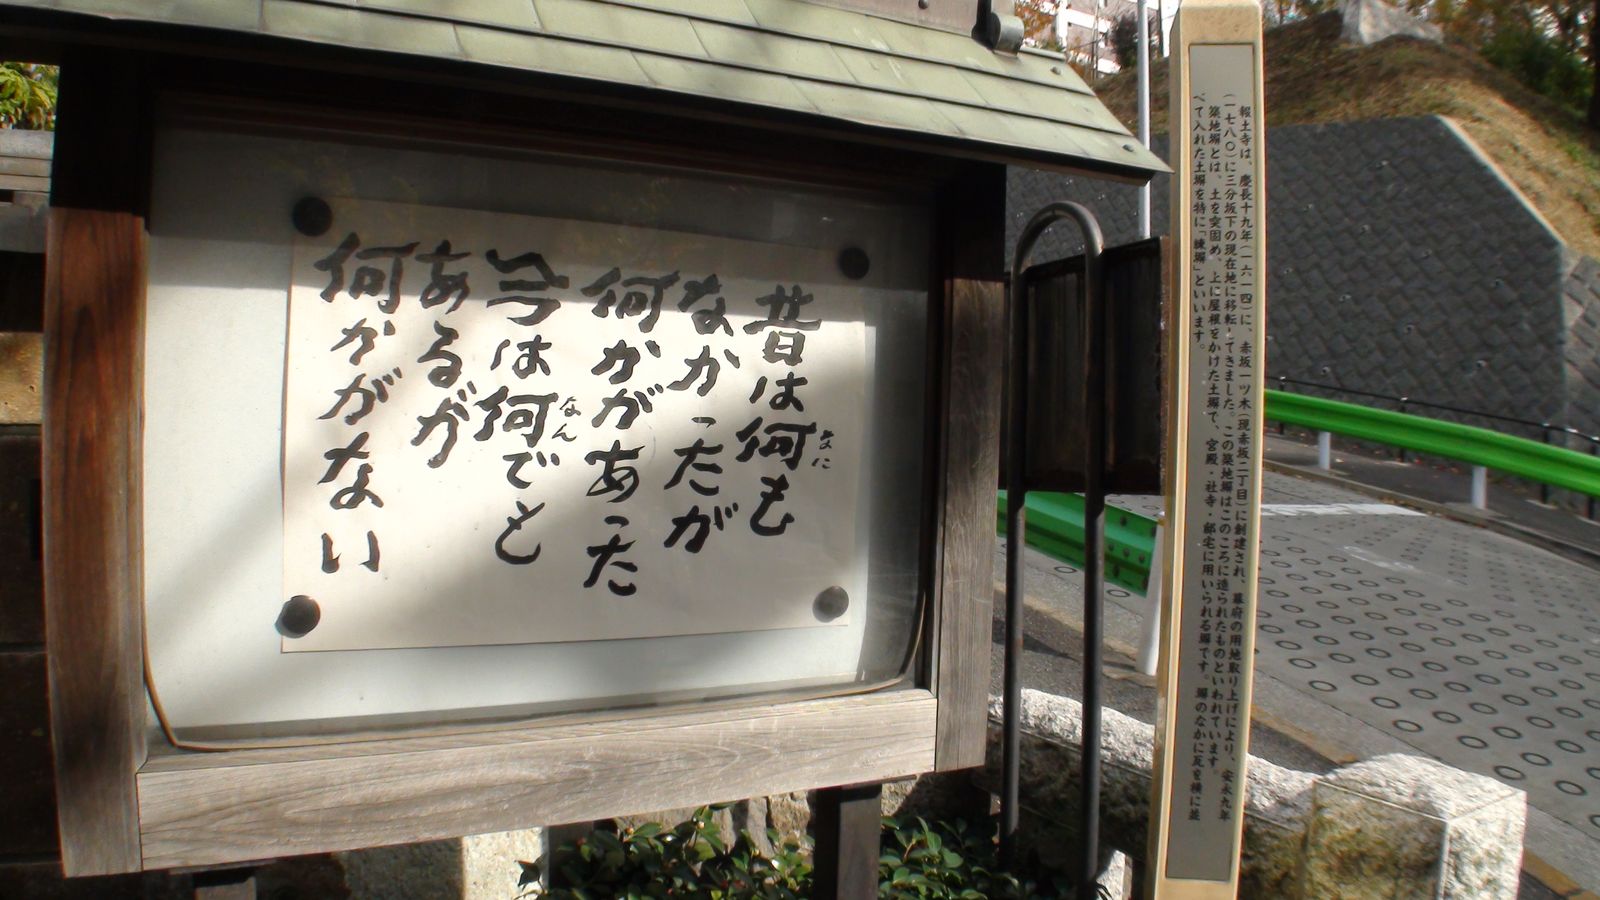 報土寺は、慶長十九年(一六一四)に、赤坂一ツ木(現赤坂二丁目)に創建され、幕府の用地取り上げにより、安永九年
(一七八〇)に三分坂下の現在地に移転してきました。この築地塀はこのころに造られたものといわれています。
築地塀とは、土を突固め、上に屋根をかけた土塀で、宮殿・社寺・邸宅に用いられる塀です。塀のなかに瓦を横に並
べて入れた土塀を特に「練塀」といいます。
昔は何も
なに
なかったが
何かがあった
今は何でと
なん
あるが
何かがない